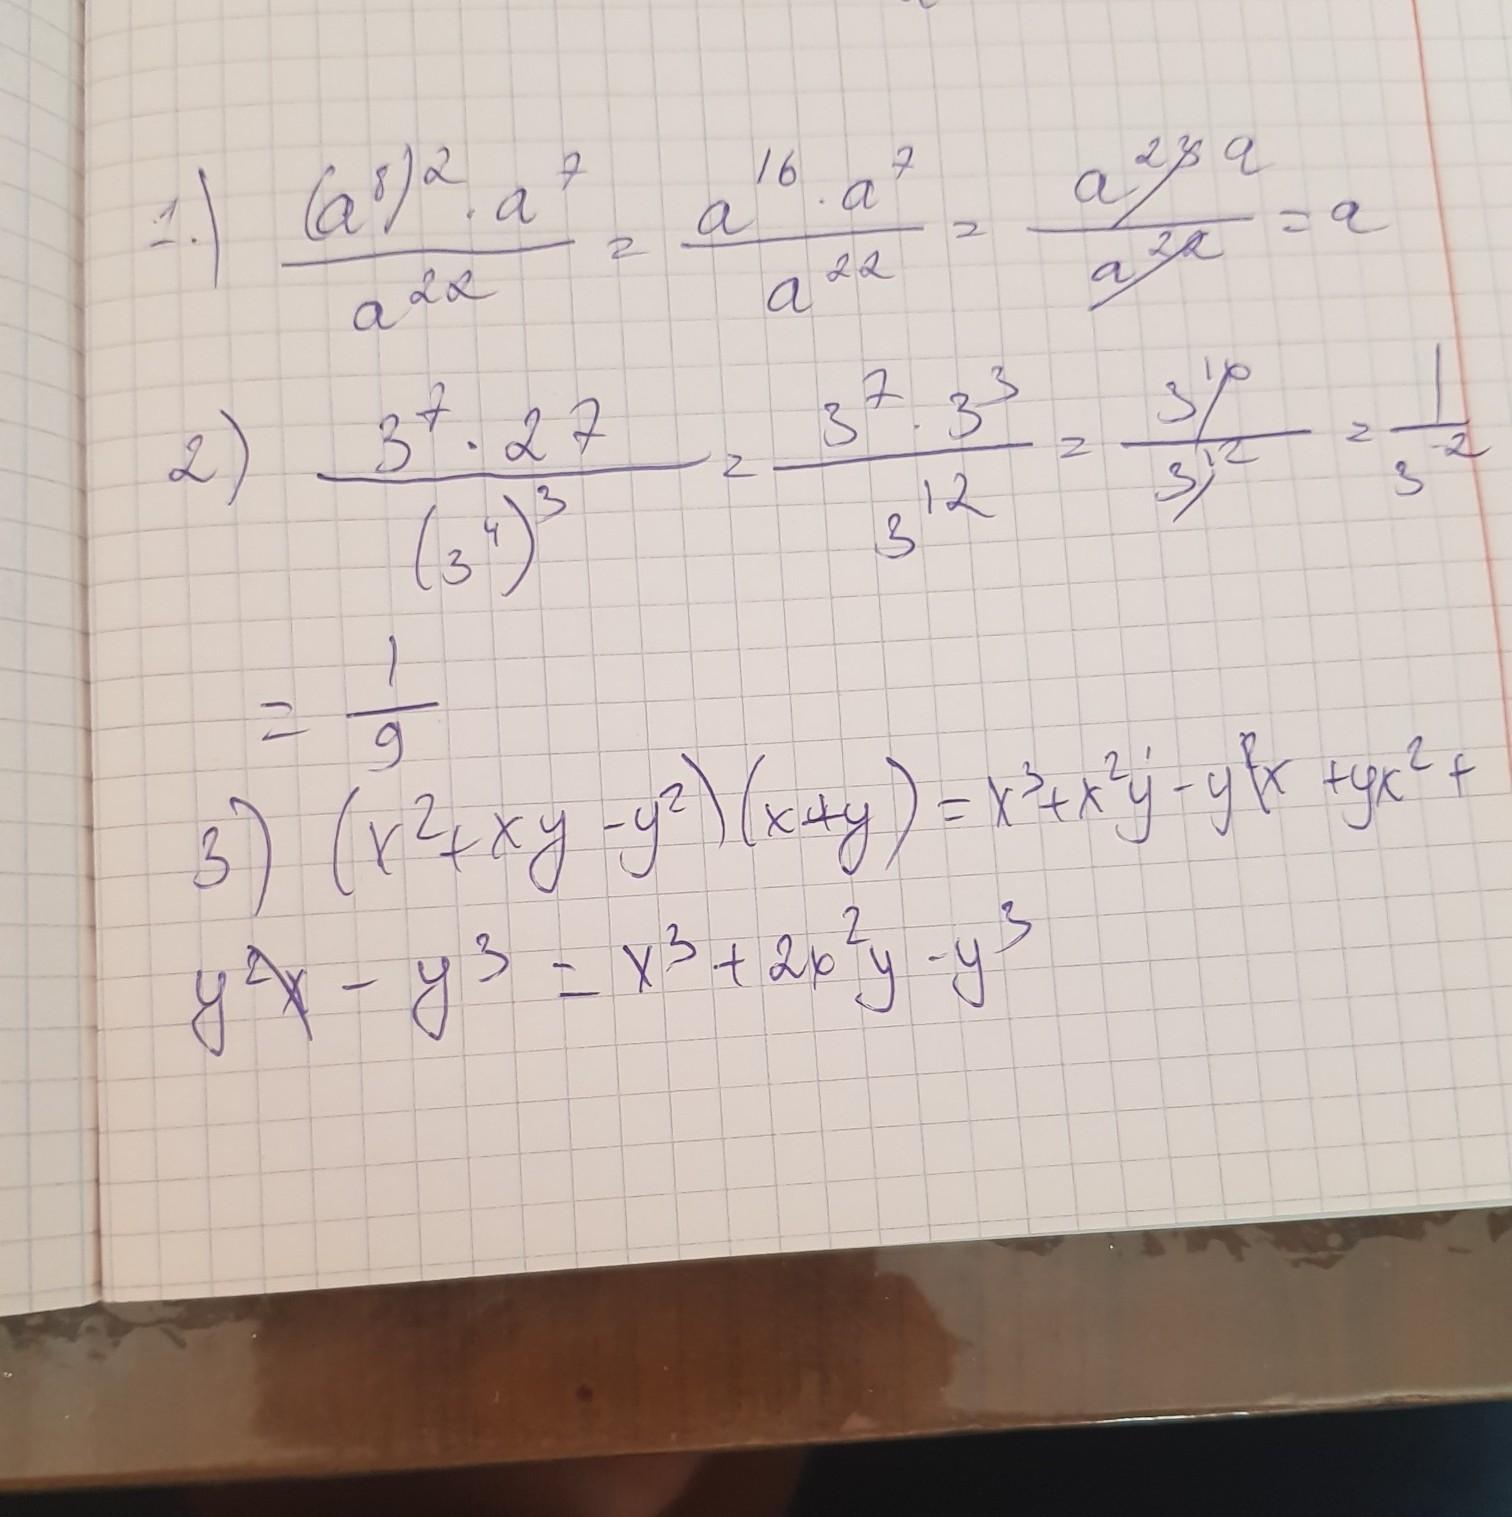 1.) (a⁸)² · a⁷ / a²² = a¹⁶ · a⁷ / a²² = a²³ a / a²² = a
2) 3⁷ · 27 / (3⁴)³ = 3⁷ · 3³ / 3¹² = 3¹⁰ / 3¹² = 1 / 3⁻²
= 1 / 9
3) (x² + xy - y²)(x + y) = x³ + x²y - y²x + yx² +
y²x - y³ = x³ + 2x²y - y³